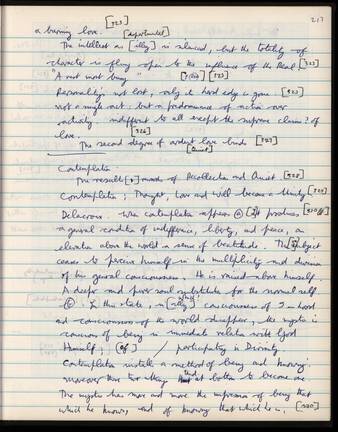 217
a burning love. [323]
The intellect as [ ] is silenced, but the totality of
character is flung open to the influence of the Real. [323]
"A rest most busy" [323]
Personality not lost, only its hard edge is gone. [323]
not a single act, but a of action over
activity indifferent to all except the supreme claim of
love. [326]
The second degree of ardent love binds [327]
[Quiet]
Contemplation.
The result of Recollection and Quiet [328]
Contemplation; Thought, Love and Will become a Unity [329]
Delacroix. when contemplation appears (a) It produces [330]
a general condition of indifference, liberty, and peace, an
elevation above the world a sense of beatitude. The Subject
ceases to perceive himself in the multiplicity and division
of his general consciousness. He is raised above himself.
A deeper and purer soul substitutes for the normal self.
In this state, in which consciousness of I-hood
and consciousness of the world disappear, the mystic is
conscious of being in immediate relation with God
Himself; [of] / participating in Divinity.
Contemplation installs a method of being and knowing.
moreover these two things tend at bottom to become one
The mystic has more and more the impression of being that
which he knows, and of knowing that which he is. [330]